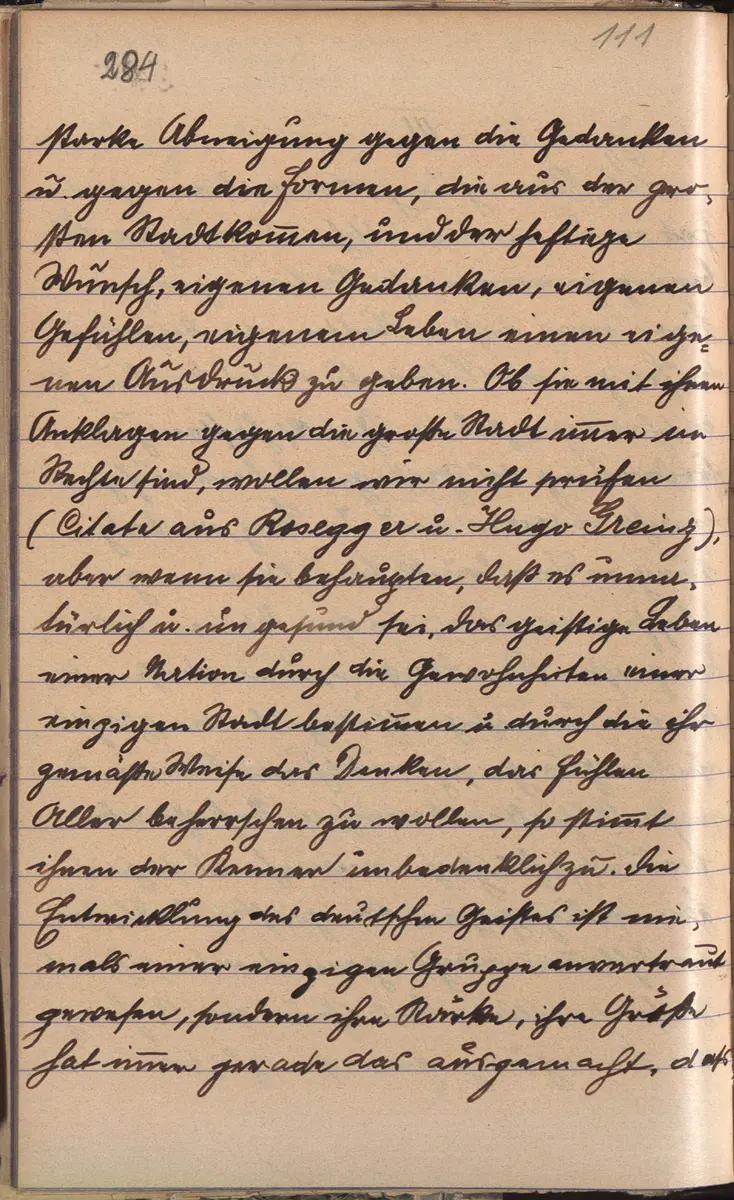 111
284
starke Abneigung gegen die Gedanken
u. gegen die Formen, die aus der gro-
ßen Stadt kom̅en, und der heftige
Wunsch, eigenen Gedanken, eigenen
Gefühlen, eigenem Leben einen eige=
nen Ausdruck zu geben. Ob sie mit ihren
Anklagen gegen die große Stadt im̅er im
Rechte sind, wollen wir nicht prüfen
(Citate aus Rosegger u. Hugo Greinz),
aber wenn sie behaupten, daß es unna-
türlich u. ungesund sei, das geistige Leben
einer Nation durch die Gewohnheiten einer
einzigen Stadt bestim̅en u. durch die ihr
gemäße Weise das Denken, das Fühlen
Aller beherrschen zu wollen, so stim̅t
ihnen der Kenner unbedenklich zu. Die
Entwicklung des deutschen Geistes ist nie-
mals einer einzigen Gruppe anvertraut
gewesen, sondern ihre Stärke, ihre Größe
hat im̅er gerade das ausgemacht, dass